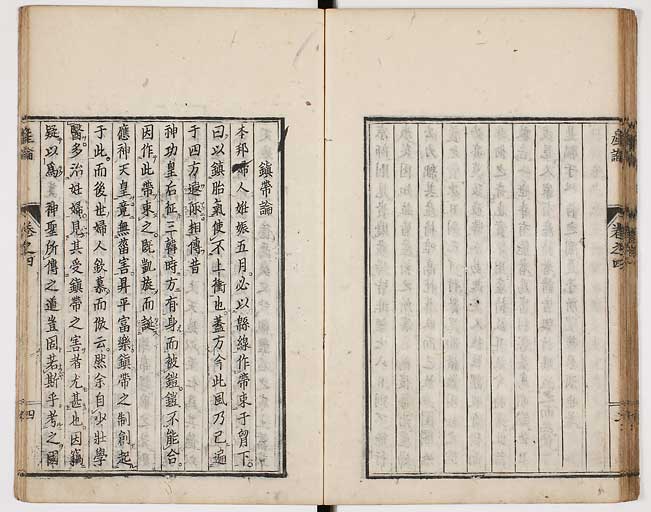 產論
卷之四
鎮帶論
本邦婦人妊娠五月必以緜線作帶束于胷下
曰以鎮胎氣使不上衝也蓋方今此風乃已遍
于四方遐陬相傳昔
神功皇后征三韓時方有身而被鎧鎧不能合
因作此帶束之既凱旋而誕
應神天皇竟無菑害昇平富樂鎮帶之制創起
于此而後世婦人欽慕而倣云然余自少壯學
醫多治妊婦見其受鎮帶之害者尤甚也因竊
疑以爲神聖所傳之道豈固若斯乎考之國
產論
卷之四
四